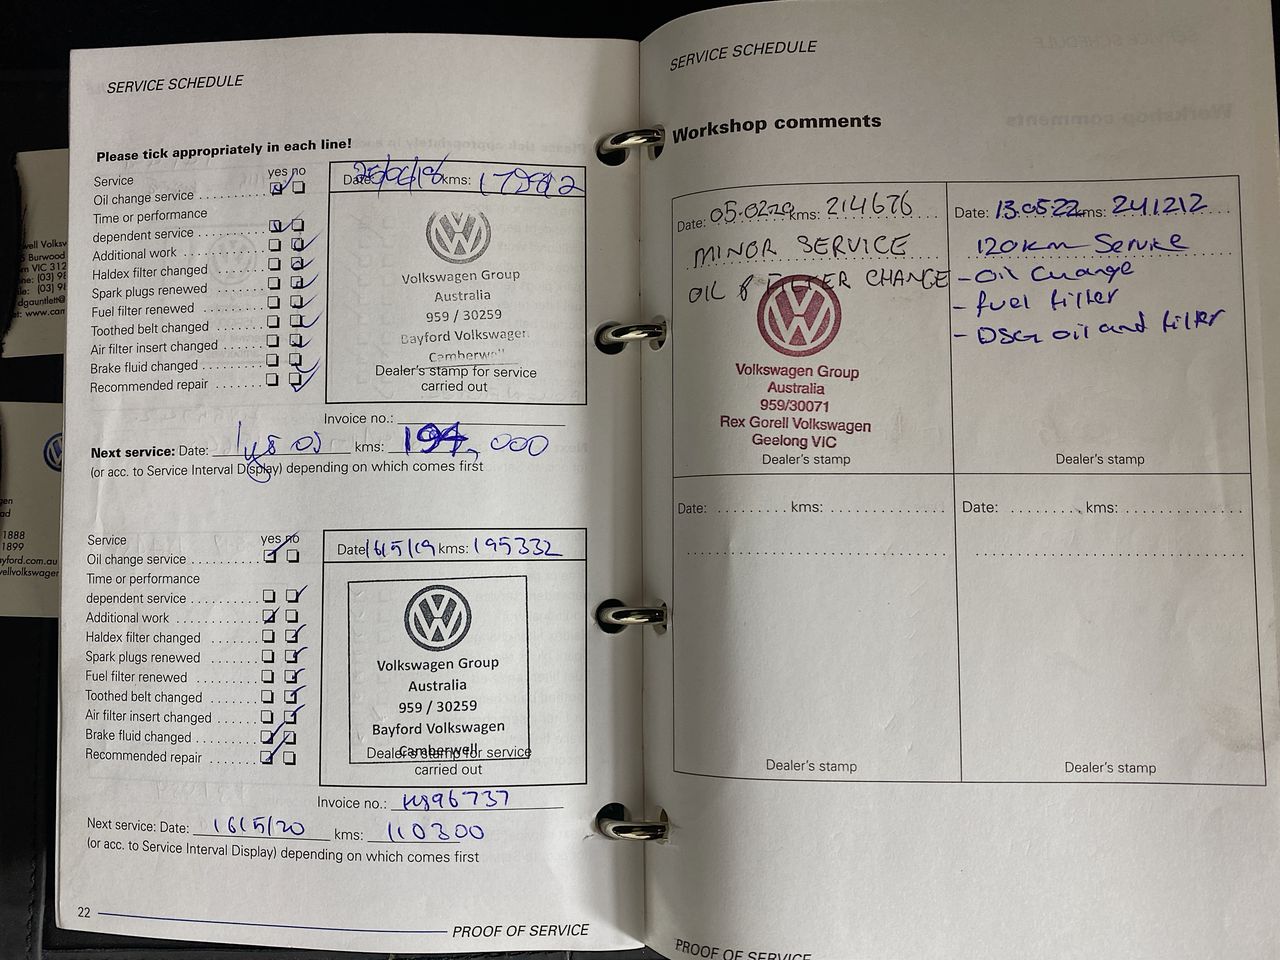 SERVICE SCHEDULE
Please tick appropriately in each line!
Service yes no
Oil change service
Time or performance
dependent service
Additional work
Haldex filter changed
Spark plugs renewed
Fuel filter renewed
Toothed belt changed
Air filter insert changed
Brake fluid changed
Recommended repair
Date: kms:
Volkswagen Group
Australia
959 / 30259
Bayford Volkswagen
Camberwell
Dealer's stamp for service
carried out
Invoice no.:
Next service: Date: kms: 194,000
(or acc. to Service Interval Display) depending on which comes first
Service yes no
Oil change service
Time or performance
dependent service
Additional work
Haldex filter changed
Spark plugs renewed
Fuel filter renewed
Toothed belt changed
Air filter insert changed
Brake fluid changed
Recommended repair
Date 16/5/19 kms: 195332
Volkswagen Group
Australia
959 / 30259
Bayford Volkswagen
Camberwell
Dealer's stamp for service
carried out
Invoice no.:
Next service: Date: 16/5/20 kms: 110300
(or acc. to Service Interval Display) depending on which comes first
22
PROOF OF SERVICE
SERVICE SCHEDULE
Workshop comments
Date: 05.02.20 kms: 214676
MINOR SERVICE
OIL & FILTER CHANGE
Volkswagen Group
Australia
959/30071
Rex Gorell Volkswagen
Geelong VIC
Dealer's stamp
Date: 13.05.22 kms: 241212
120km Service
- Oil Change
- fuel filter
- DSG oil and filter
Dealer's stamp
Date: kms:
Dealer's stamp
Date: kms:
Dealer's stamp
PROOF OF SERVICE